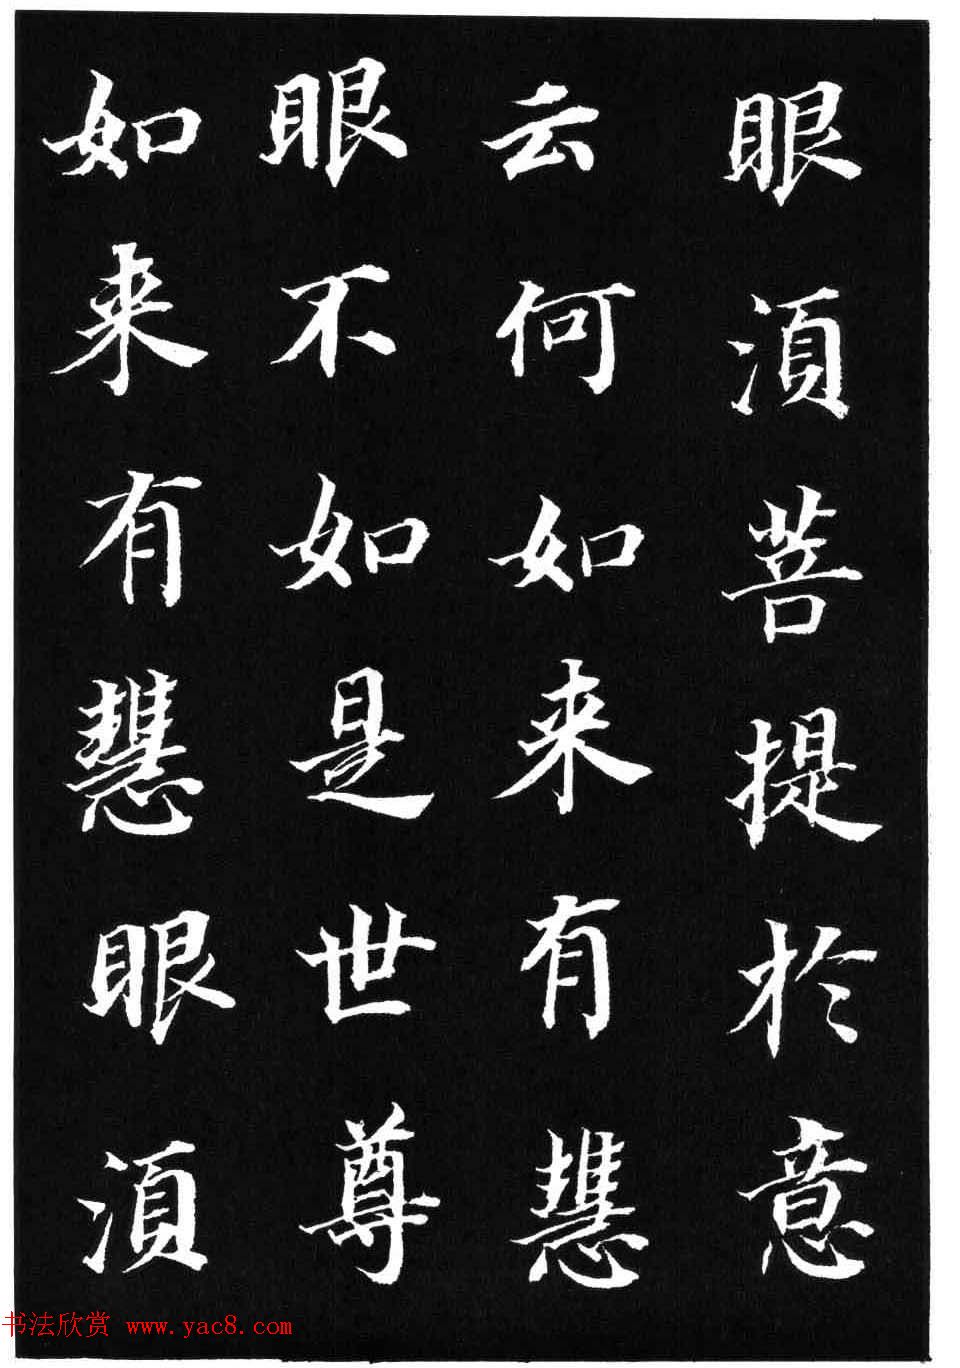 眼湏菩提於意
云何如来有慧
眼不如是世尊
如来有慧眼湏
书法欣赏 www.yac8.com